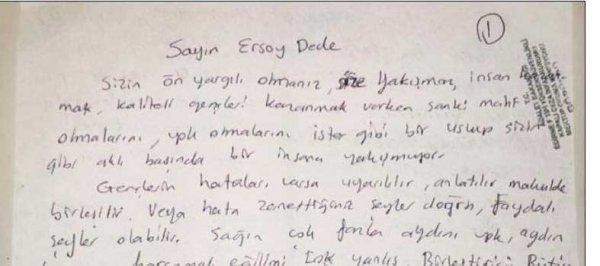 1
Sayın Ersoy Dede
Sizin ön yargılı olmanız, size Yakışmaz, insan
mak, kaliteli gençleri kazanmak varken sanki mahf
olmalarını, yok olmalarını ister gibi bir uslup sizin
gibi aklı başında bir insana yakışmıyor.
Gençlerin hataları varsa uyarılır, anlatılır makulde
birleşilir. Veya hata zannettiğiniz şeyler doğru, faydalı
şeyler olabilir. Sağın çok fazla aydını yok, aydın
harcamak eğilimi çok yanlış. Birleştirici Bütün